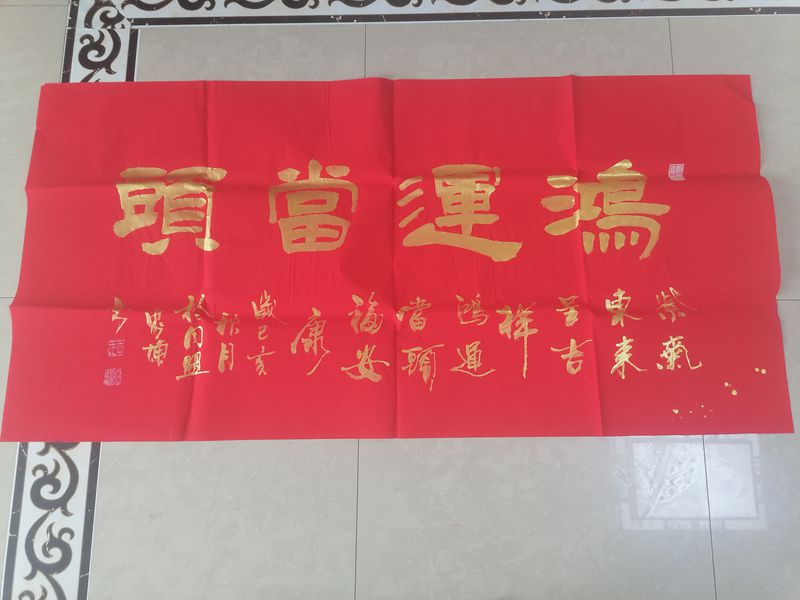 鴻運當頭
紫氣
東來
呈吉
祥
鴻運
當頭
福安
康
歲己亥
秋月
於同盟
書